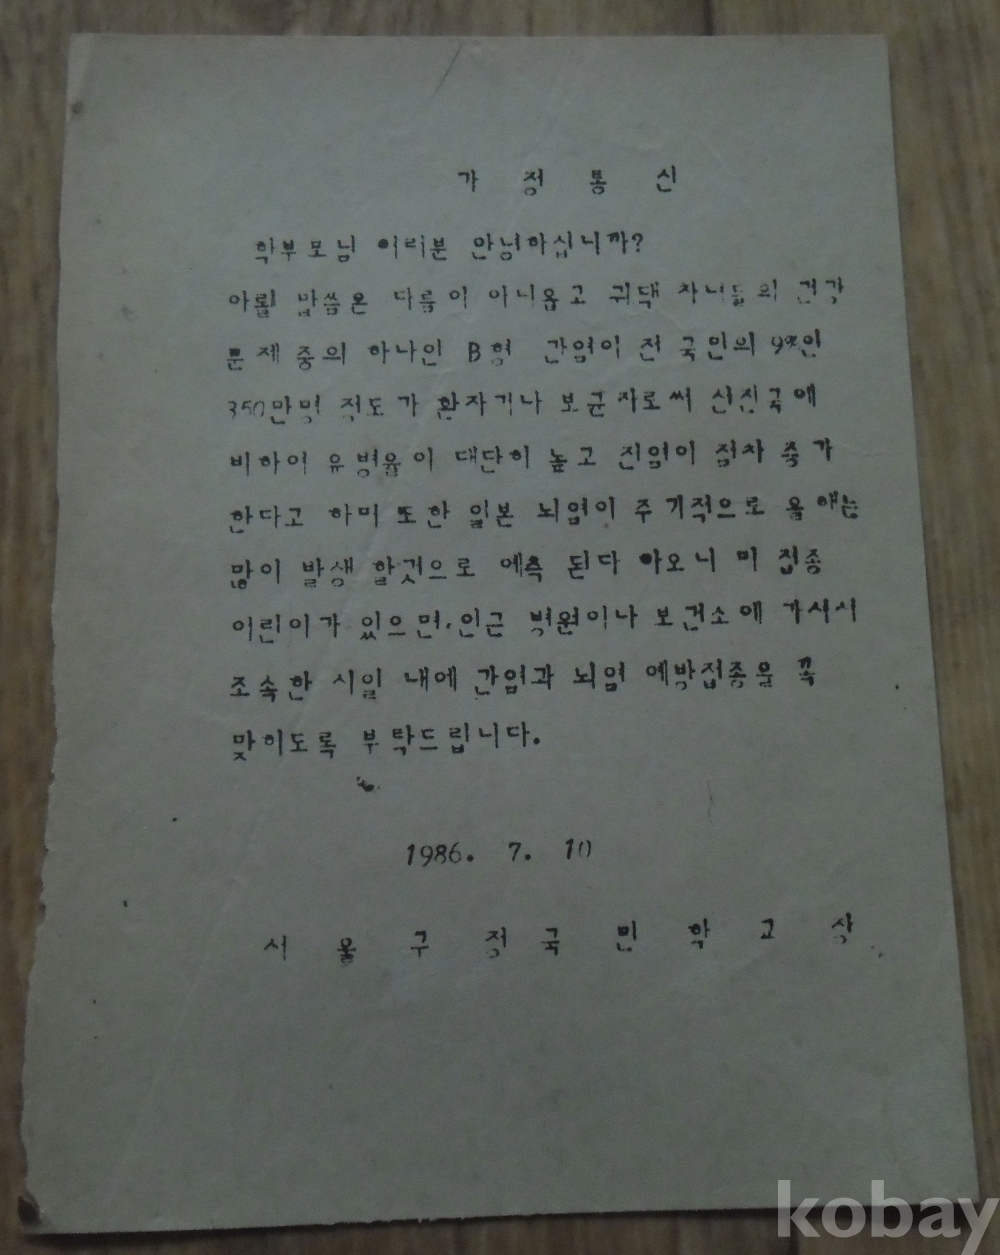 가 정 통 신
학부모님 여러분 안녕하십니까?
아뢸 말씀은 다름이 아니옵고 귀댁 자녀들의 건강
문제 중의 하나인 B형 간염이 전 국민의 9%인
350만명 정도가 환자거나 보균자로써 선진국에
비하여 유병율이 대단히 높고 전염이 점차 증가
한다고 하며 또한 일본 뇌염이 주기적으로 올해는
많이 발생 할것으로 예측 된다 하오니 미 접종
어린이가 있으면, 인근 병원이나 보건소에 가시서
조속한 시일 내에 간염과 뇌염 예방접종을 꼭
맞히도록 부탁드립니다.
1986. 7. 10
서 울 구 정 국 민 학 교 장
kobay